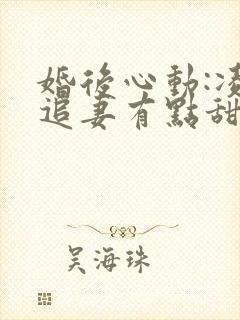 婚後心動:凌
追妻有點甜
吴海珠